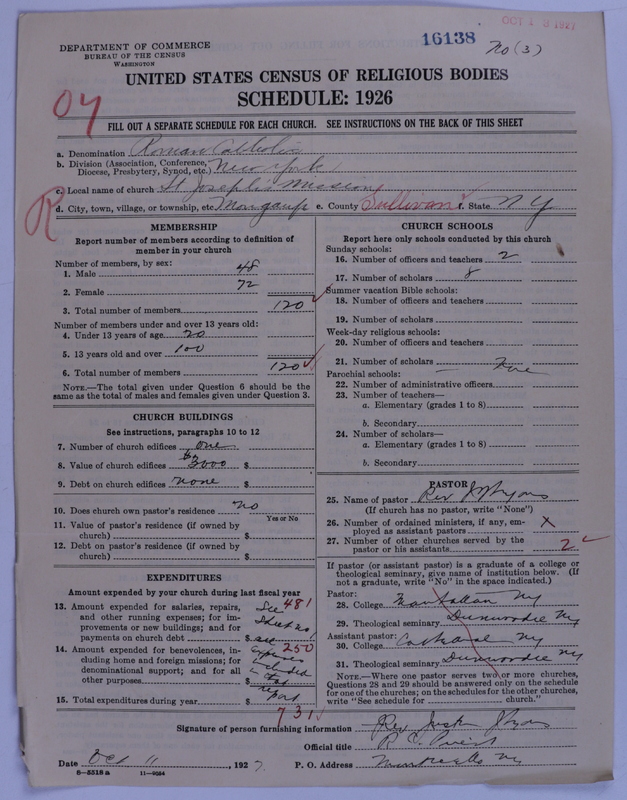 OCT 13 1927
16138 No (3)
DEPARTMENT OF COMMERCE
BUREAU OF THE CENSUS
WASHINGTON
UNITED STATES CENSUS OF RELIGIOUS BODIES
SCHEDULE: 1926
04
FILL OUT A SEPARATE SCHEDULE FOR EACH CHURCH. SEE INSTRUCTIONS ON THE BACK OF THIS SHEET
a. Denomination Roman Catholic
b. Division (Association, Conference,
Diocese, Presbytery, Synod, etc.) New York
c. Local name of church St Josephs Mission
R
d. City, town, village, or township, etc. Mongaup e. County Sullivan f. State N Y
MEMBERSHIP
Report number of members according to definition of
member in your church
Number of members, by sex:
1. Male 48
2. Female 72
3. Total number of members 120
Number of members under and over 13 years old:
4. Under 13 years of age 20
5. 13 years old and over 100
6. Total number of members 120
NOTE.—The total given under Question 6 should be the
same as the total of males and females given under Question 3.
CHURCH BUILDINGS
See instructions, paragraphs 10 to 12
7. Number of church edifices one
8. Value of church edifices 3000 $
9. Debt on church edifices none $
10. Does church own pastor's residence no
Yes or No
11. Value of pastor's residence (if owned by
church) $
12. Debt on pastor's residence (if owned by
church) $
EXPENDITURES
Amount expended by your church during last fiscal year
13. Amount expended for salaries, repairs,
and other running expenses; for im-
provements or new buildings; and for
payments on church debt $
See 481
Sheet no 1
14. Amount expended for benevolences, in-
cluding home and foreign missions; for
denominational support; and for all
other purposes $
all 250
expenses
included
in that
report
15. Total expenditures during year $
731
CHURCH SCHOOLS
Report here only schools conducted by this church
Sunday schools:
16. Number of officers and teachers 2
17. Number of scholars 8
Summer vacation Bible schools:
18. Number of officers and teachers
19. Number of scholars
Week-day religious schools:
20. Number of officers and teachers
21. Number of scholars
Parochial schools:
22. Number of administrative officers
23. Number of teachers—
a. Elementary (grades 1 to 8)
b. Secondary
24. Number of scholars—
a. Elementary (grades 1 to 8)
b. Secondary
PASTOR
25. Name of pastor Rev
(If church has no pastor, write "None")
26. Number of ordained ministers, if any, em-
ployed as assistant pastors X
27. Number of other churches served by the
pastor or his assistants 2
If pastor (or assistant pastor) is a graduate of a college or
theological seminary, give name of institution below. (If
not a graduate, write "No" in the space indicated.)
Pastor:
28. College Manhattan Ny
29. Theological seminary Dunwoodie Ny
Assistant pastor:
30. College Cathedral Ny
31. Theological seminary Dunwoodie Ny
NOTE.—Where one pastor serves two or more churches,
Questions 28 and 29 should be answered only on the schedule
for one of the churches; on the schedules for the other churches,
write "See schedule for church."
Signature of person furnishing information Rev
Official title R C Priest
Date Oct 11, 1927. P. O. Address Monticello Ny
8—5518 a 11—9054